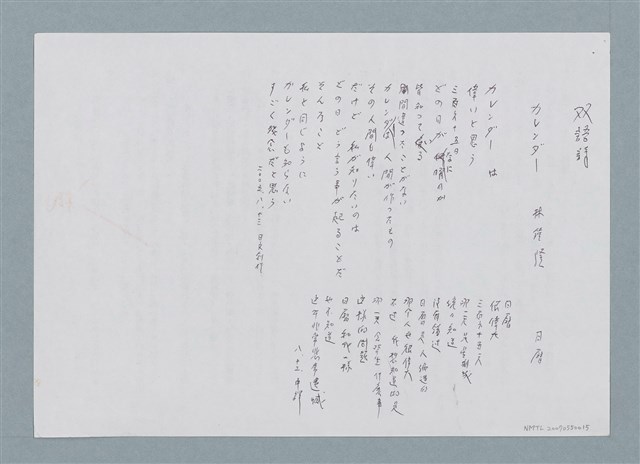 双語詩
カレンダー　　　日曆
カレンダー は
偉いと思う
三百六十五日
どの日が なにの日か
皆知って居る
間違ったことがない
カレンダは 人間が作ったもの
その人間も偉い
だけど 私が知りたいのは
どの日 どう言う事が起ることだ
そんなこと
私と同じように
カレンダーも知らない
すごく残念だと思う
二〇〇六、八、十三 日文創作
日曆
很偉大
三百六十五天
哪一天是
都知道
沒有錯過
日曆是人做造的
那個人也很偉大
不過 我想知道的是
哪一天會發生什麼事
這樣的問題
日曆和我一樣
也不知道
這非常遺憾
NMTL20070530015